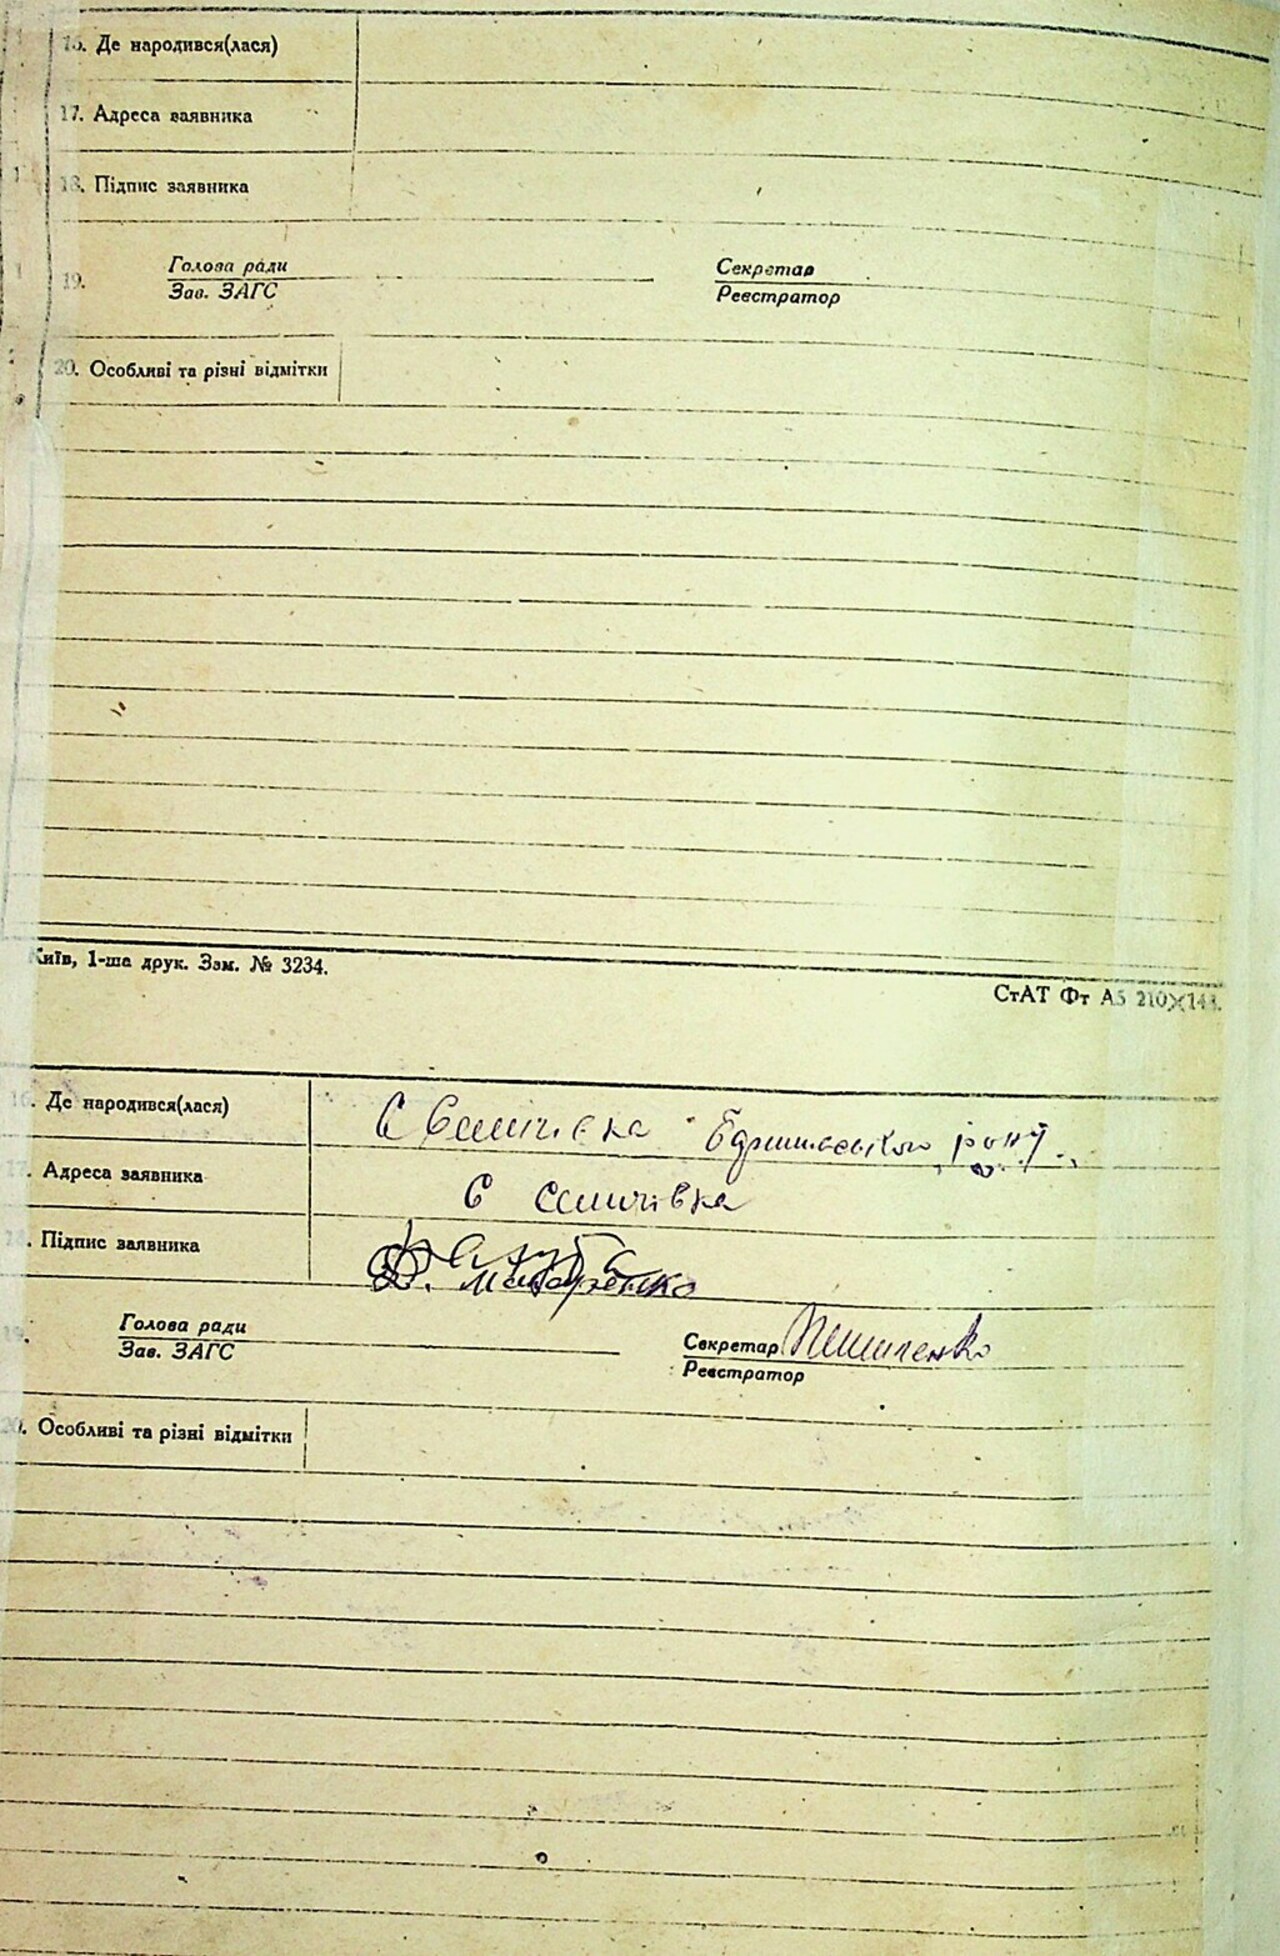 16. Де народився(лася)
17. Адреса заявника
18. Підпис заявника
19. Голова ради Секретар
Зав. ЗАГС Реєстратор
20. Особливі та різні відмітки
Київ, 1-ша друк. Зам. № 3234.
СтАТ Фт А5 210×148.
16. Де народився(лася) С Семичівка
17. Адреса заявника С Семичівка
18. Підпис заявника
19. Голова ради Секретар
Зав. ЗАГС Реєстратор
20. Особливі та різні відмітки